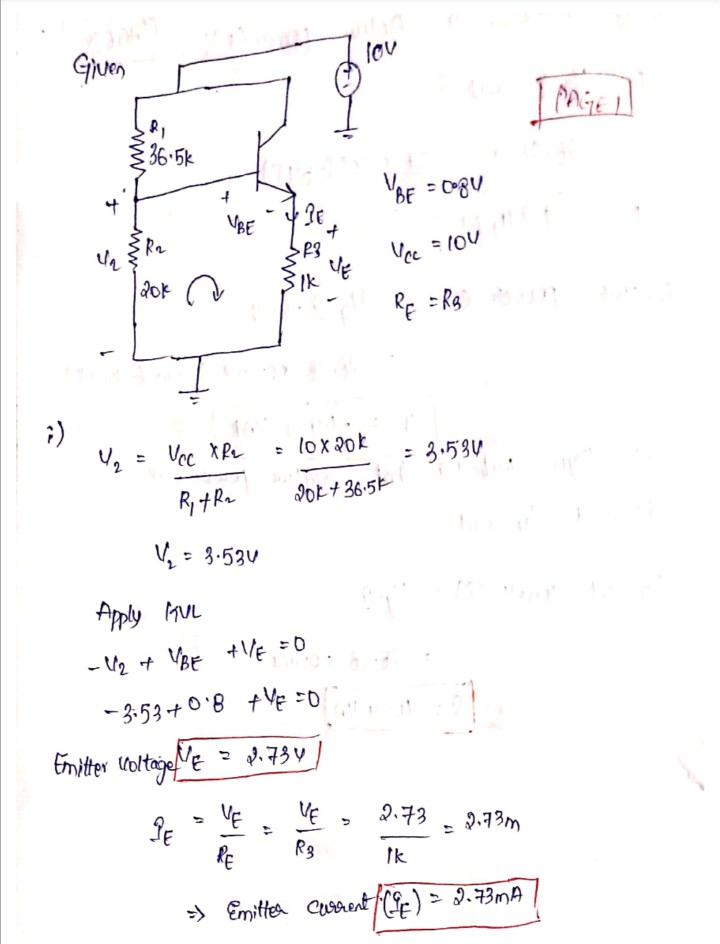 Given
10V
PAGE 1
R1
36.5k
VBE = 0.8V
+
+
VBE
-
IE
+
V2
R2
R3
VE
VCC = 10V
20k
1k
-
RE = R3
-
i)
V2 = VCC × R2 / R1 + R2 = 10 × 20k / 20k + 36.5k = 3.53V.
V2 = 3.53V
Apply KVL
-V2 + VBE + VE = 0.
-3.53 + 0.8 + VE = 0
Emitter Voltage VE = 2.73V
IE = VE / RE = VE / R3 = 2.73 / 1k = 2.73m
⇒ Emitter current (IE) = 2.73mA